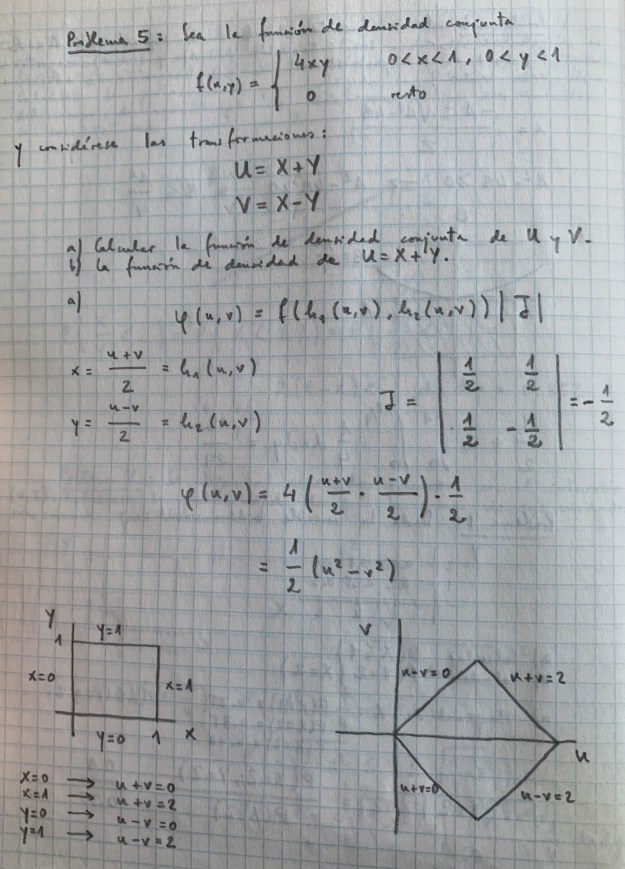 Problema 5: Sea la función de densidad conjunta
f(x,y) = { 4xy 0<x<1, 0<y<1
0 resto
y considérese las transformaciones:
U = X+Y
V = X-Y
a) Calcular la función de densidad conjunta de U y V.
b) La función de densidad de U=X+Y.
a)
φ(u,v) = f(h₁(u,v), h₂(u,v)) |J|
x = (u+v)/2 = h₁(u,v)
y = (u-v)/2 = h₂(u,v)
J = | 1/2 1/2 |
| 1/2 -1/2 | = -1/2
φ(u,v) = 4 ( (u+v)/2 · (u-v)/2 ) · 1/2
= 1/2 (u²-v²)
Y
1
y=1
x=0
x=1
y=0
1
X
V
u-v=0
u+v=2
u
u+v=0
u-v=2
x=0 → u+v=0
x=1 → u+v=2
y=0 → u-v=0
y=1 → u-v=2